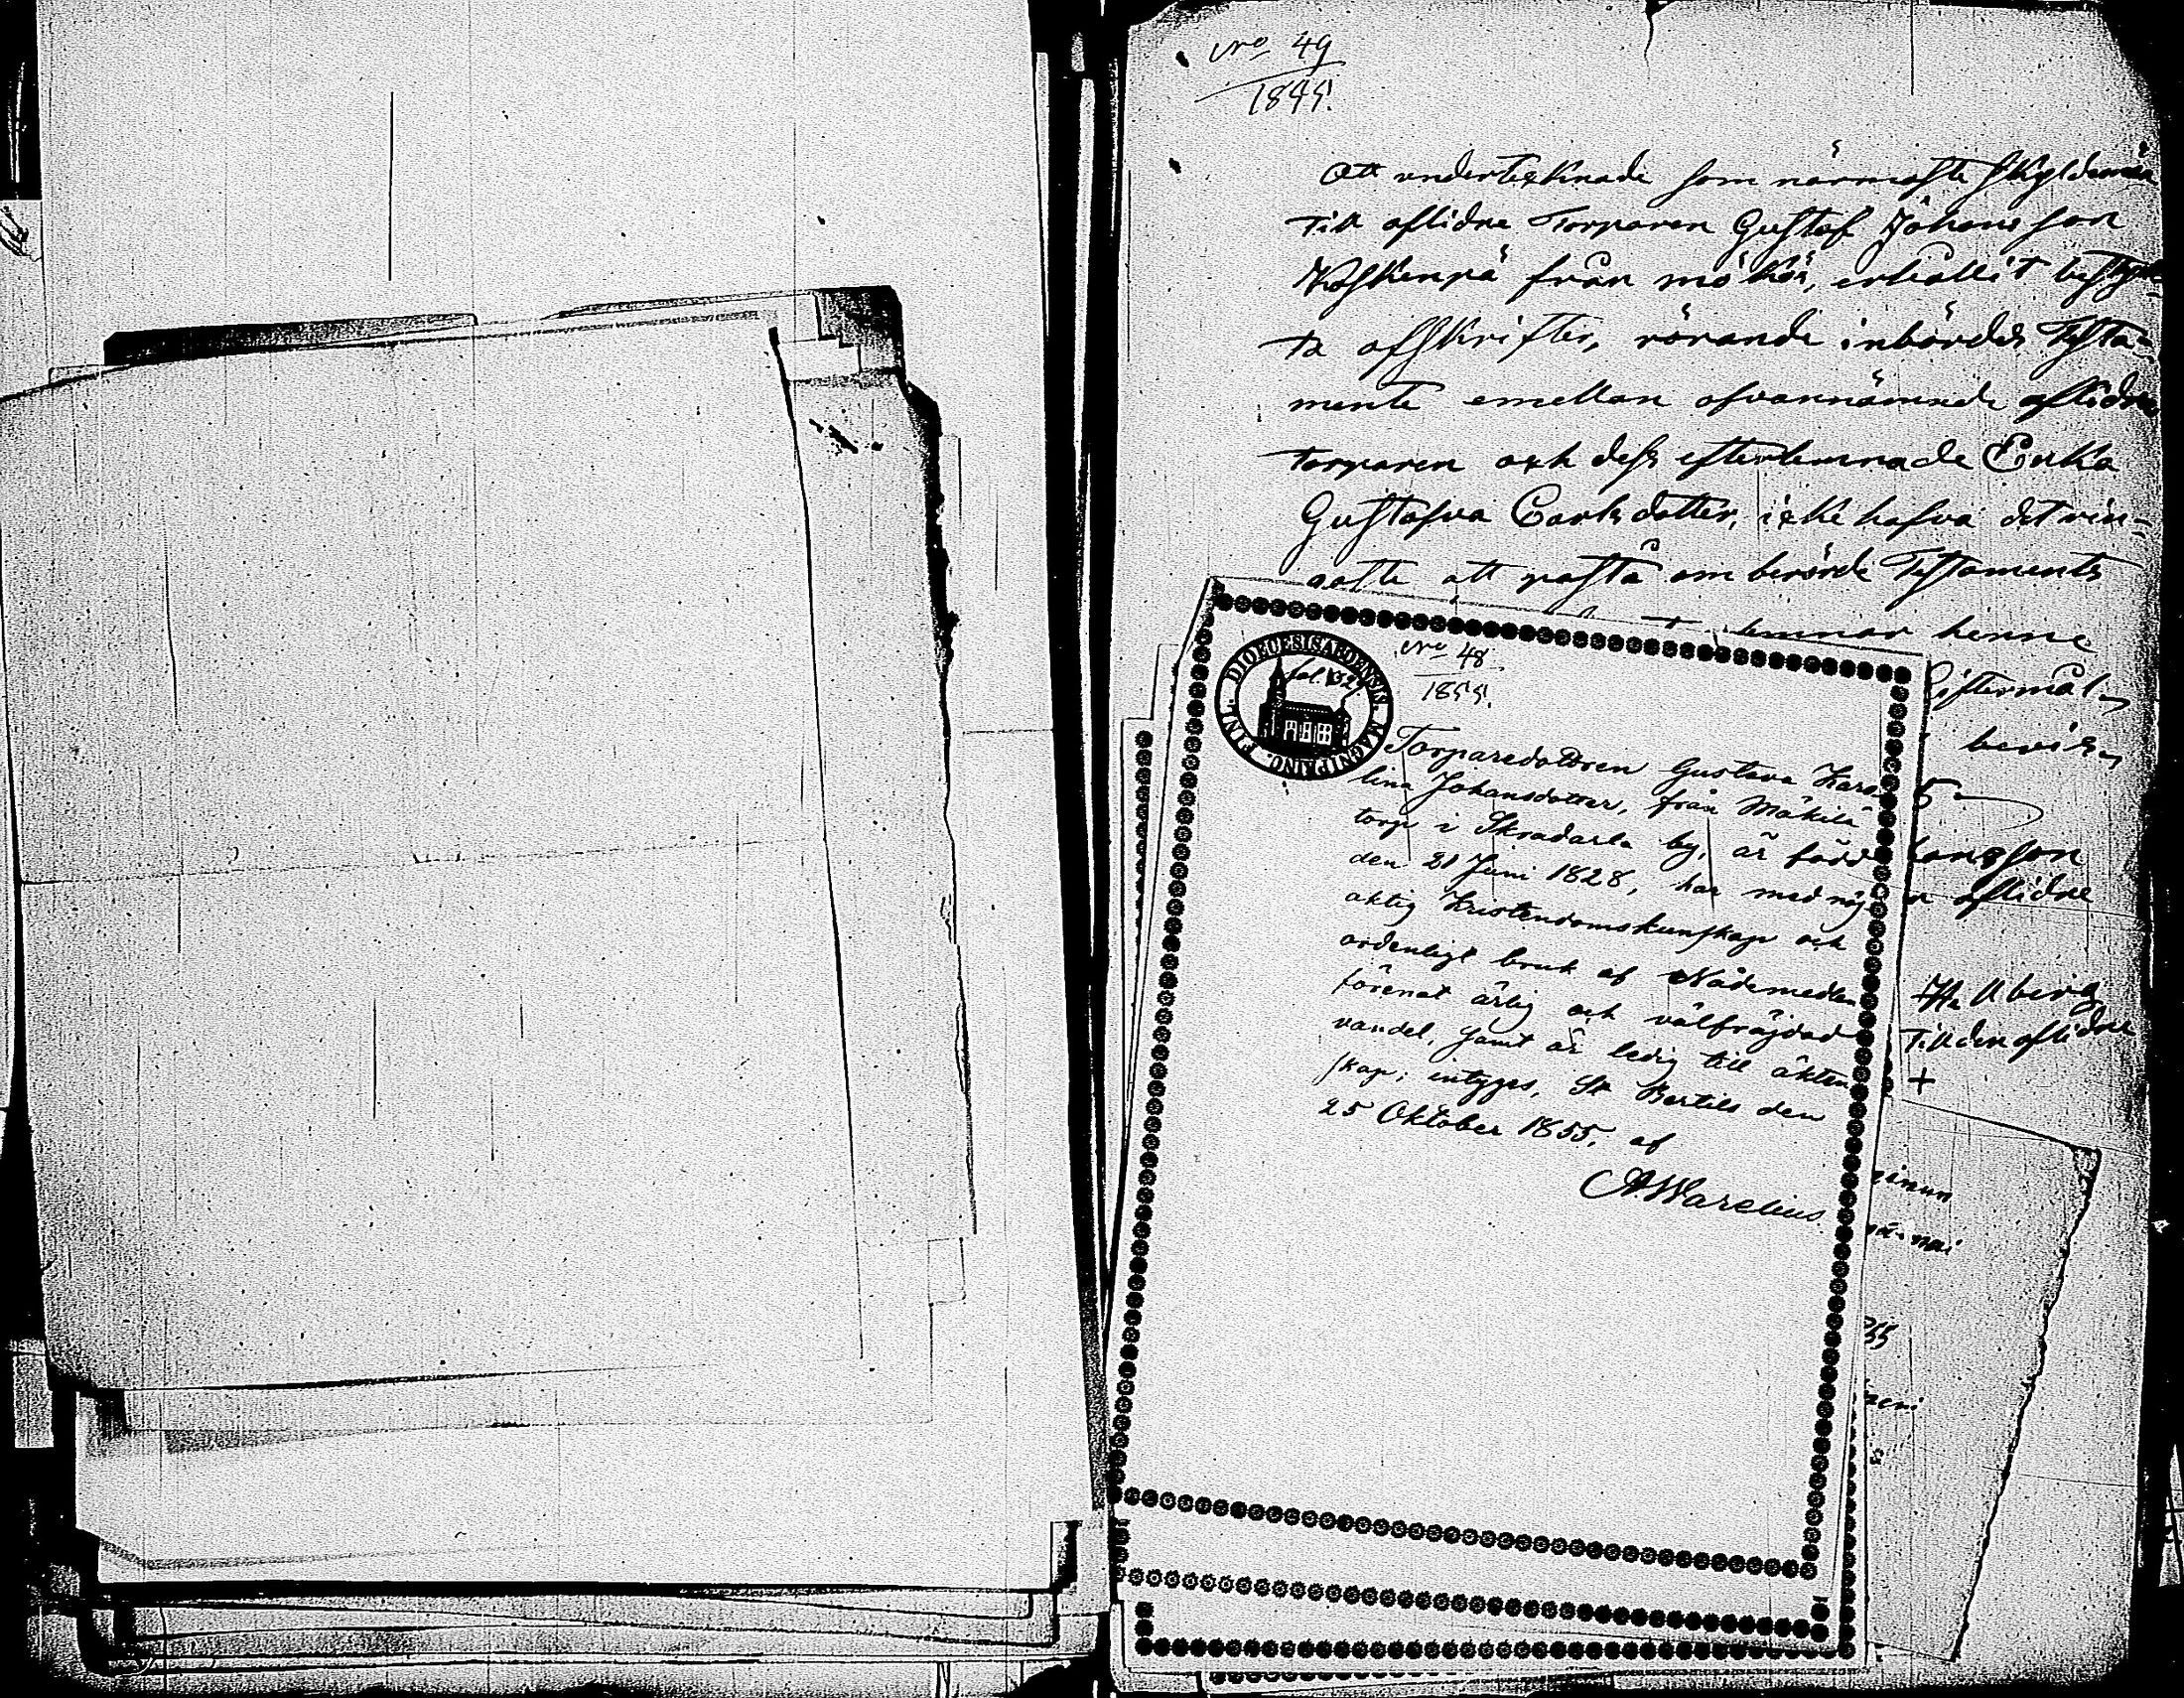 No 49
1845.
Att undertecknade som närmaste skyldemän
till aflidne Torparen Gustaf Johansson
från erhållit
ta afskrifter, rörande inbördes Testa-
mente emellan ofvannämnde aflidne
torparen och dess efterlemnade Enka
Gustafva Carlsdotter, icke hafva det rin-
gaste att påstå om berörde Testamente
lemnar henne
giftermål
bevis
5
hansson
aflidne
Till den aflidne
+
No 48
1855.
DIOECESIS ABOENSIS. MAGNI PRINC. FINL.
fol. 132.
Torparedottren Gustava Karo
lina Johansdotter, från Mäkilä
torp i Skradarla by, är född
den 21 Juni 1828, har med nöj
aktig Kristendomskunskap och
ordentligt bruk af Nådemedlen
förenat ärlig och välfräjdad
vandel, samt är ledig till äkten
skap; intygas, St Bertils den
25 Oktober 1855. af
AWarelius